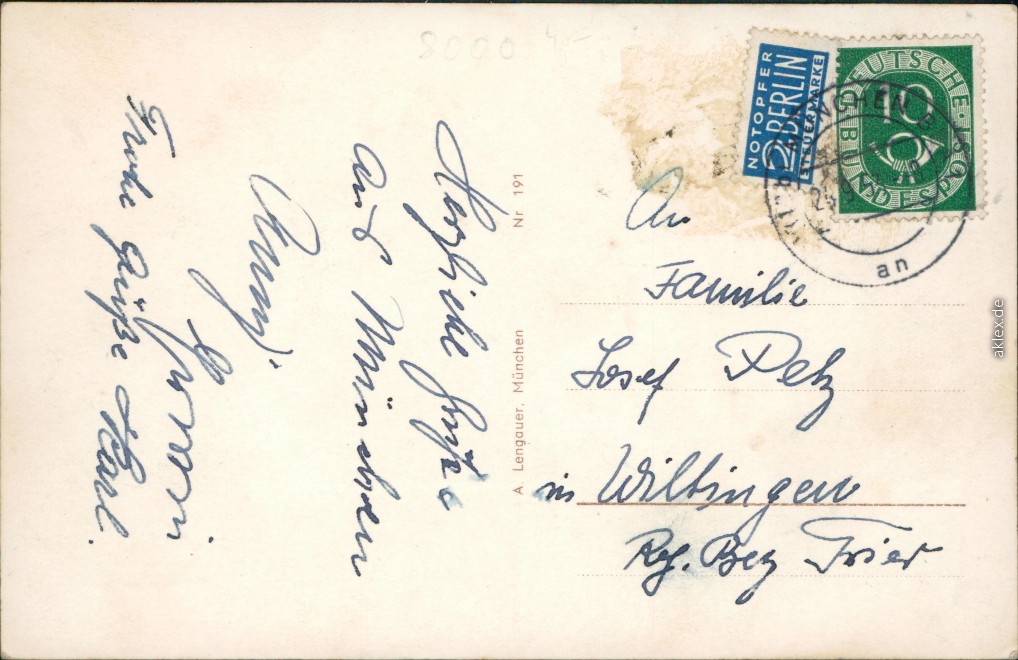 8000 4,-
Herzliche Grüße
aus München
Anny
Frohe Grüße Karl.
Nr 191
A. Lengauer, München
NOTOPFER
2 BERLIN
STEUERMARKE
DEUTSCHE
BUNDESPOST
10
MÜNCHEN
an
An
Familie
Josef Petz
in Wiltingen
Reg. Bez Trier
aklex.de